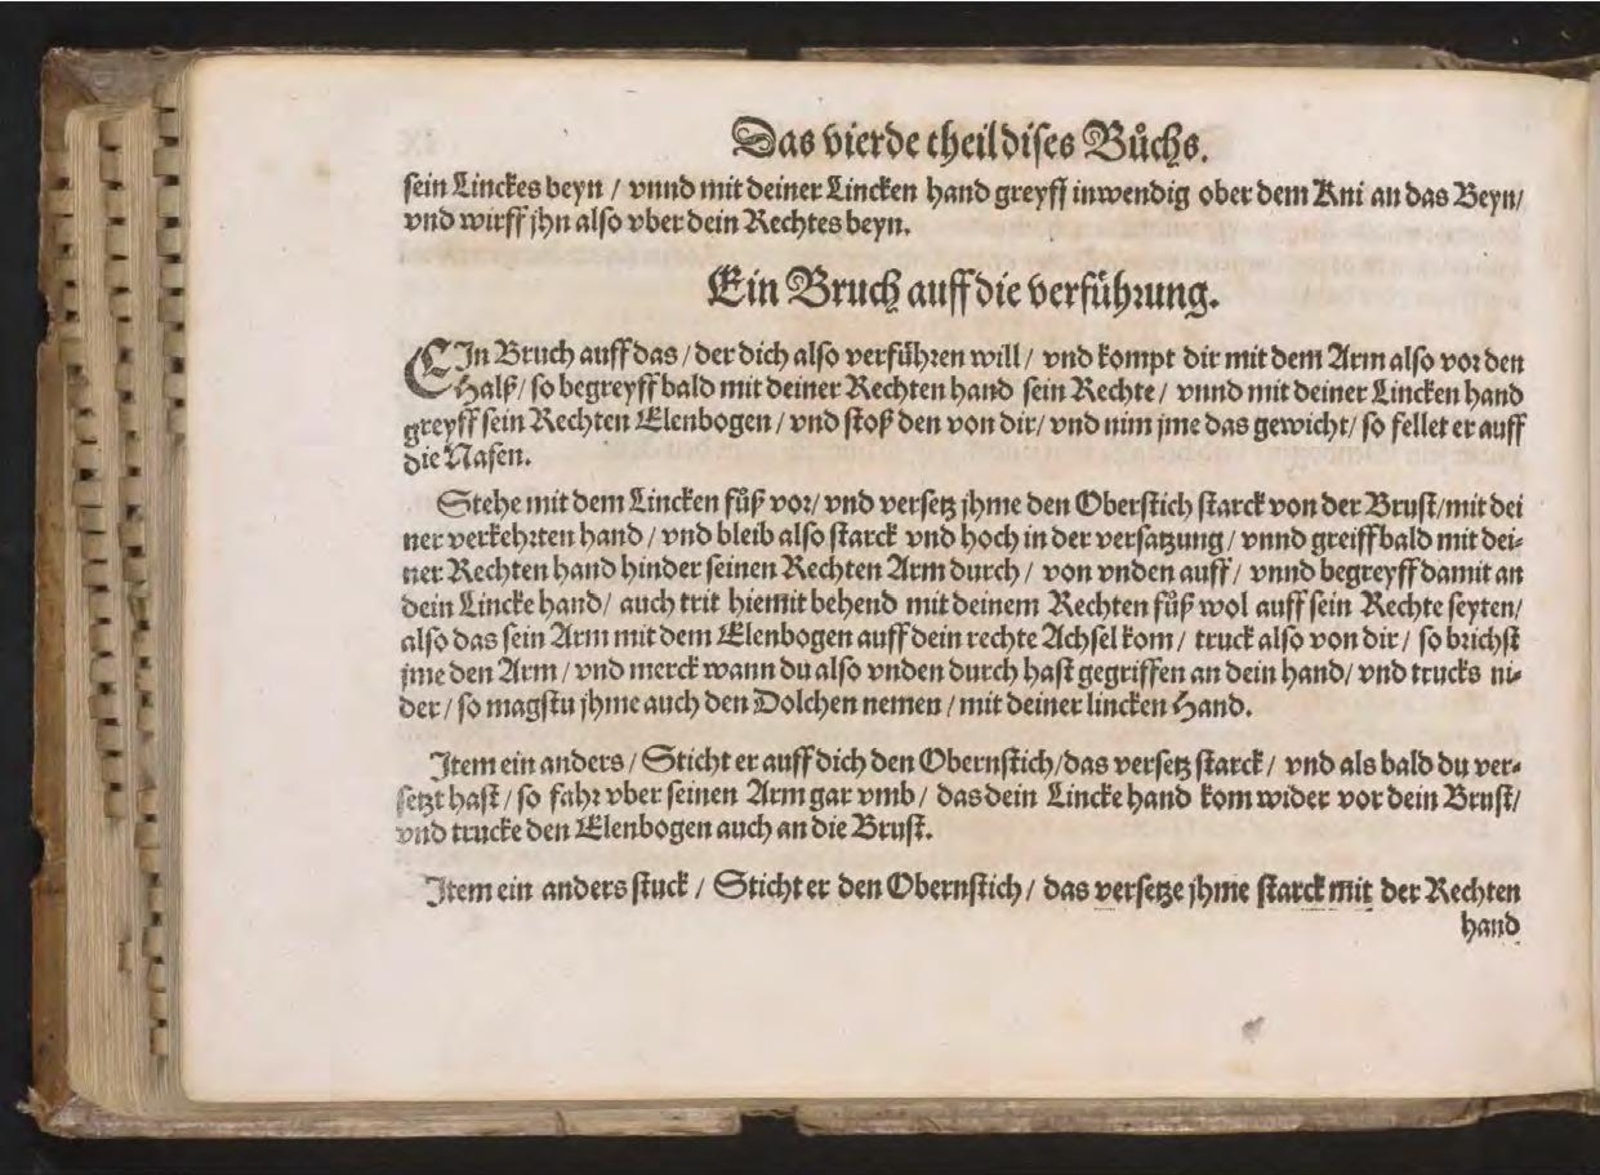 Das vierde theil dises Bůchs.
sein Linckes beyn / vnnd mit deiner Lincken hand greyff inwendig ober dem Kni an das Beyn/
vnd wirff jhn also vber dein Rechtes beyn.
Ein Bruch auff die verführung.
EIn Bruch auff das / der dich also verführen will / vnd kompt dir mit dem Arm also vor den
Halß / so begreyff bald mit deiner Rechten hand sein Rechte / vnnd mit deiner Lincken hand
greyff sein Rechten Elenbogen / vnd stoß den von dir / vnd nim jme das gewicht / so fellet er auff
die Nasen.
Stehe mit dem Lincken fůß vor / vnd versetz jhme den Oberstich starck von der Brust / mit dei
ner verkehrten hand / vnd bleib also starck vnd hoch in der versatzung / vnnd greiff bald mit dei-
ner Rechten hand hinder seinen Rechten Arm durch / von vnden auff / vnnd begreyff damit an
dein Lincke hand / auch trit hiemit behend mit deinem Rechten fůß wol auff sein Rechte seyten /
also das sein Arm mit dem Elenbogen auff dein rechte Achsel kom / truck also von dir / so brichst
jme den Arm / vnd merck wann du also vnden durch hast gegriffen an dein hand / vnd trucks ni-
der / so magstu jhme auch den Dolchen nemen / mit deiner lincken Hand.
Item ein anders / Sticht er auff dich den Obernstich / das versetz starck / vnd als bald du ver-
setzt hast / so fahr vber seinen Arm gar vmb / das dein Lincke hand kom wider vor dein Brust /
vnd trucke den Elenbogen auch an die Brust.
Item ein anders stuck / Sticht er den Obernstich / das versetze jhme starck mit der Rechten
hand